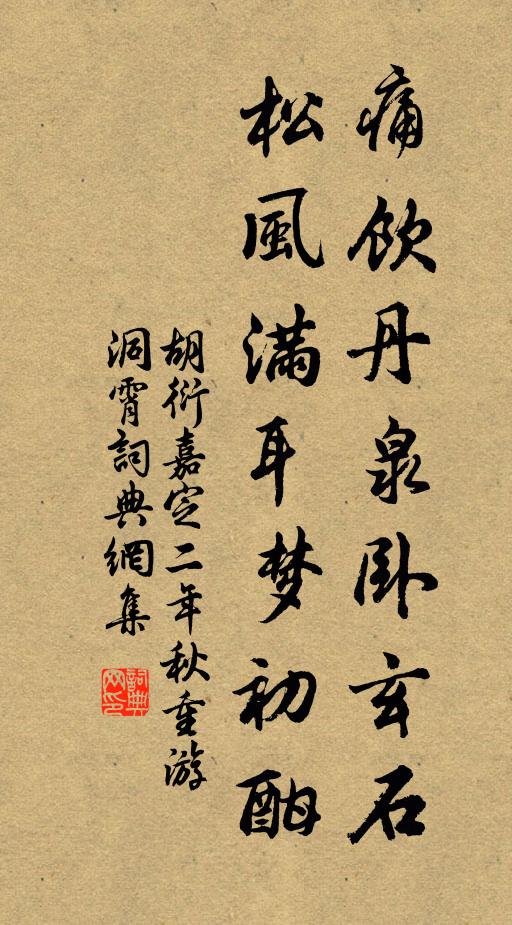 痛飲丹泉卧玄石
松風滿耳梦初酣
胡衍嘉定二年秋重游
洞霄詞典網集
詞典网印